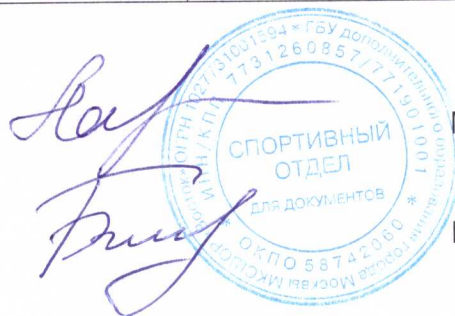 ОГРН 1027731001594 * ГБУ дополнительного образования города Москвы МКСШОР
ИНН/КПП 7731260857/771901001
СПОРТИВНЫЙ
ОТДЕЛ
ДЛЯ ДОКУМЕНТОВ
* ОКПО 58742060 *